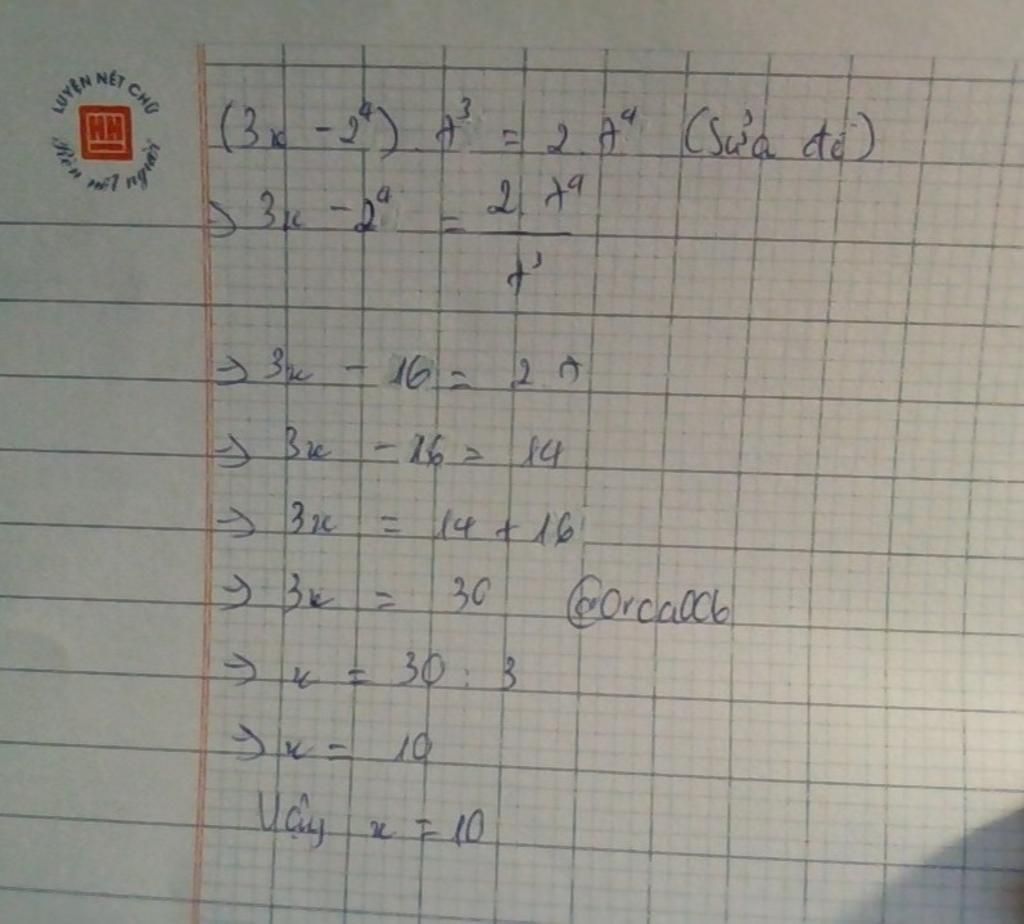 LUYỆN NÉT CHỮ
HH
Rèn nết người
(3x - 2⁴) 7³ = 2 7⁴ (Sửa đề)
⇒ 3x - 2⁴ = 2 7⁴
7³
⇒ 3x - 16 = 2 7
⇒ 3x - 16 = 14
⇒ 3x = 14 + 16
⇒ 3x = 30 @Orca006
⇒ x = 30 : 3
⇒ x = 10
Vậy x = 10